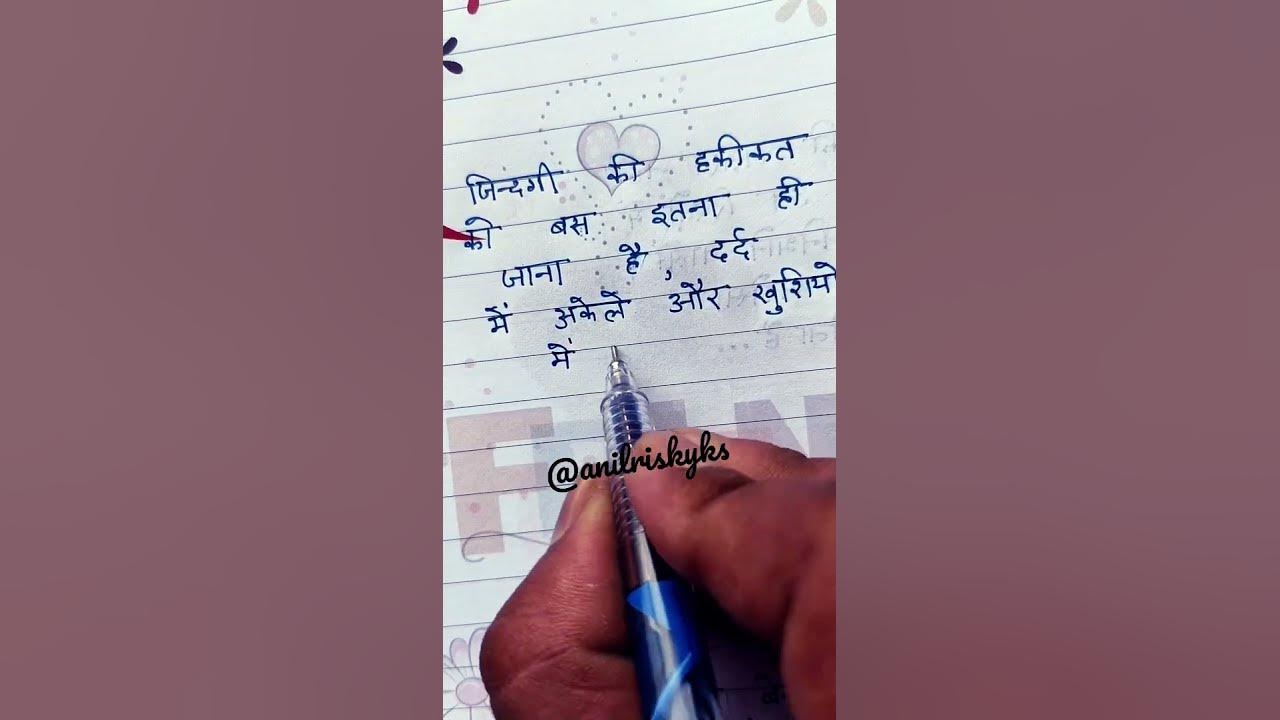 जिन्दगी की हकीकत
को बस इतना ही
जाना है, दर्द
में अकेले और खुशियो
में
@anilriskyks